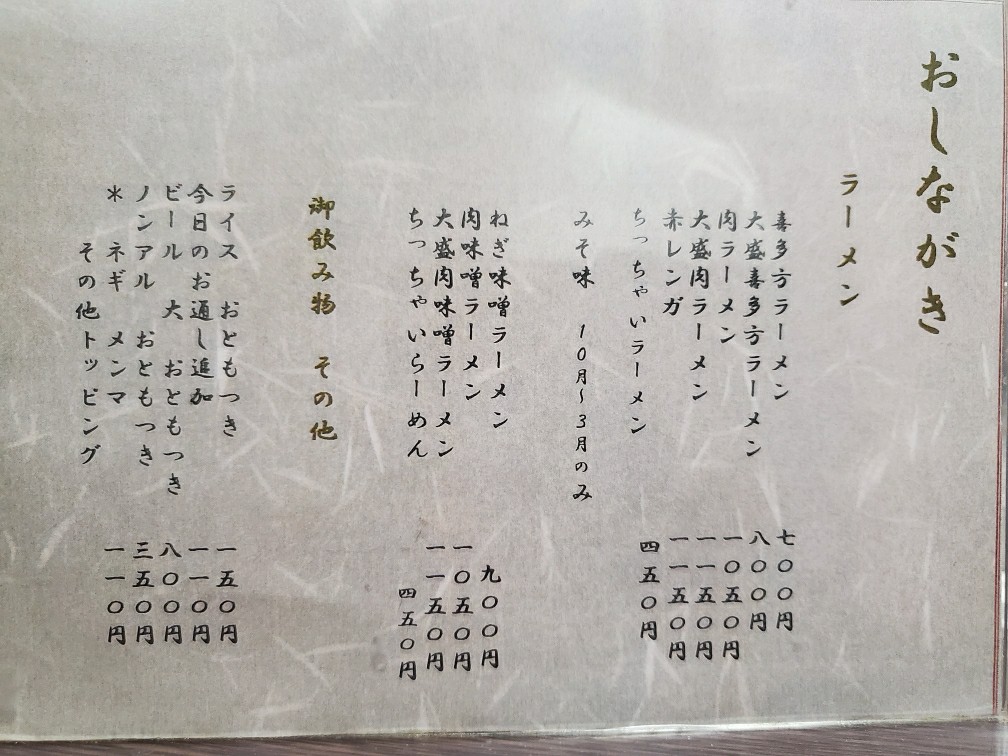 おしながき
ラーメン
喜多方ラーメン 七〇〇円
大盛喜多方ラーメン 八〇〇円
肉ラーメン 一〇五〇円
大盛肉ラーメン 一一五〇円
赤レンガ 一一五〇円
ちっちゃいラーメン 四五〇円
みそ味 10月~3月のみ
ねぎ味噌ラーメン 九〇〇円
肉味噌ラーメン 一〇五〇円
大盛肉味噌ラーメン 一一五〇円
ちっちゃいらーめん 四五〇円
御飲み物 その他
ライス おともつき 一五〇円
今日のお通し追加 一一〇円
ビール 大 おともつき 八〇〇円
ノンアル おともつき 三五〇円
* ネギ メンマ 一一〇円
その他トッピング